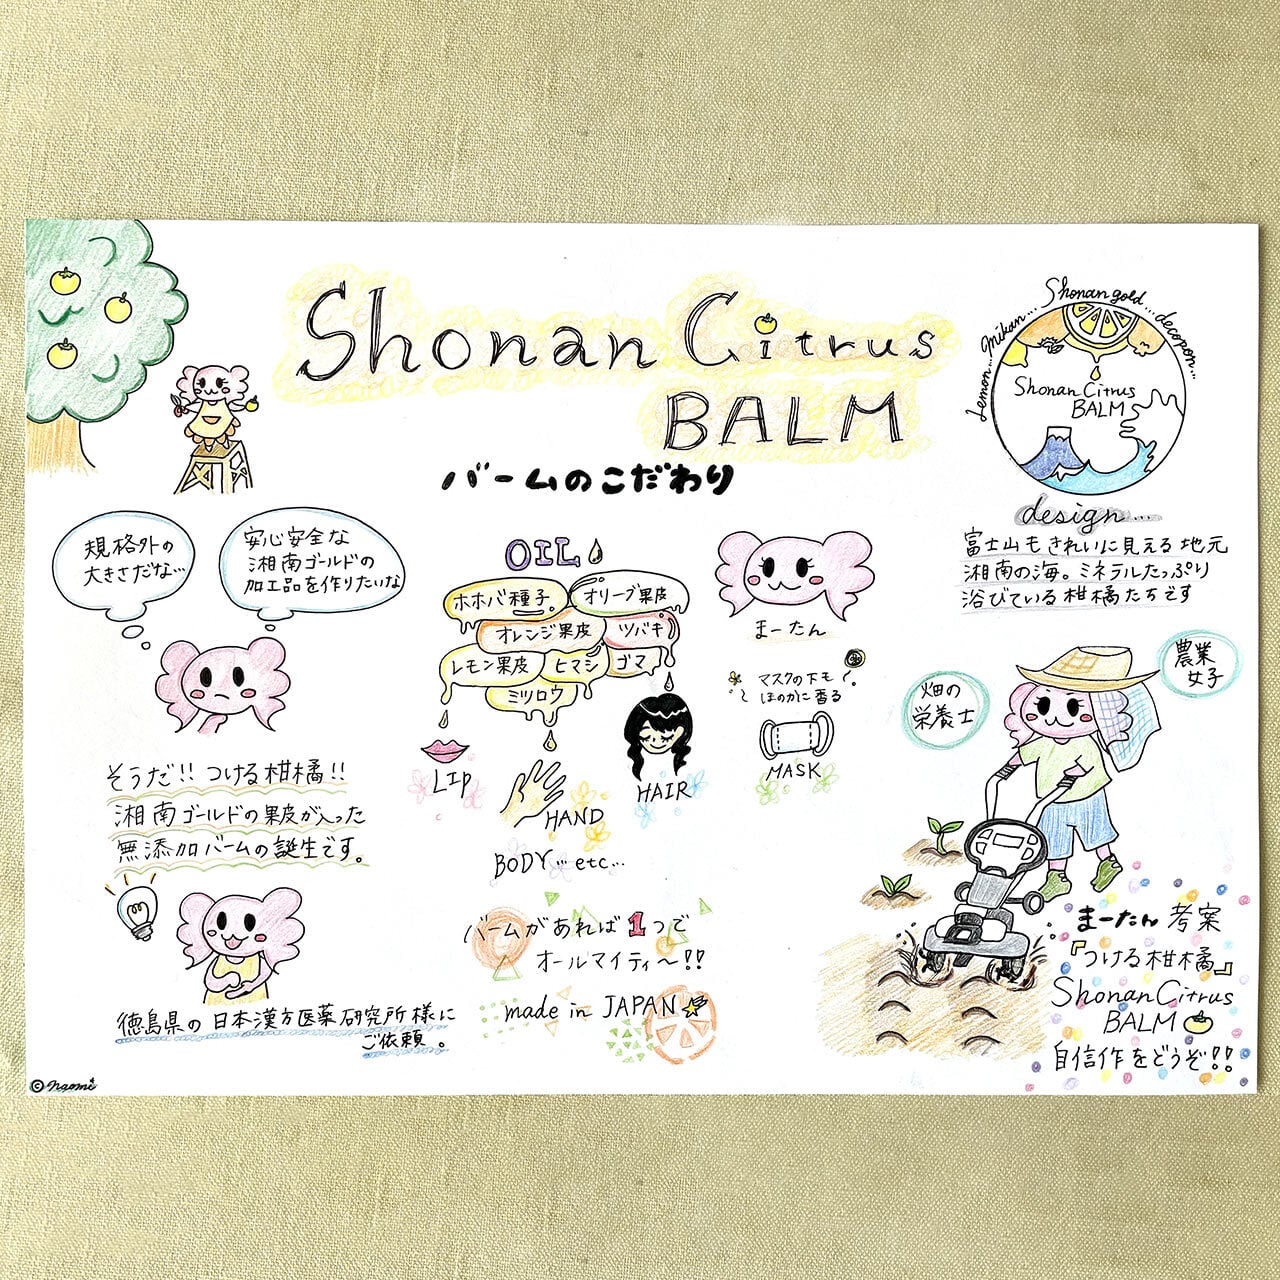 Shonan Citrus
BALM
バームのこだわり
Lemon...Mikan...Shonan gold...decopon...
Shonan Citrus
BALM
design...
富士山もきれいに見える地元
湘南の海。ミネラルたっぷり
浴びている柑橘たちです
規格外の
大きさだな…
安心安全な
湘南ゴールドの
加工品を作りたいな
そうだ!!つける柑橘!!
湘南ゴールドの果皮が入った
無添加バームの誕生です。
徳島県の日本漢方医薬研究所様に
ご依頼。
OIL
ホホバ種子
オリーブ果皮
オレンジ果皮
ツバキ
レモン果皮
ヒマシ
ゴマ
ミツロウ
LIP
HAND
HAIR
BODY…etc…
まーたん
マスクの下も
ほのかに香る
MASK
バームがあれば1つで
オールマイティ〜!!
made in JAPAN
畑の
栄養士
農業
女子
まーたん考案
『つける柑橘』
Shonan Citrus
BALM
自信作をどうぞ!!
©naomi